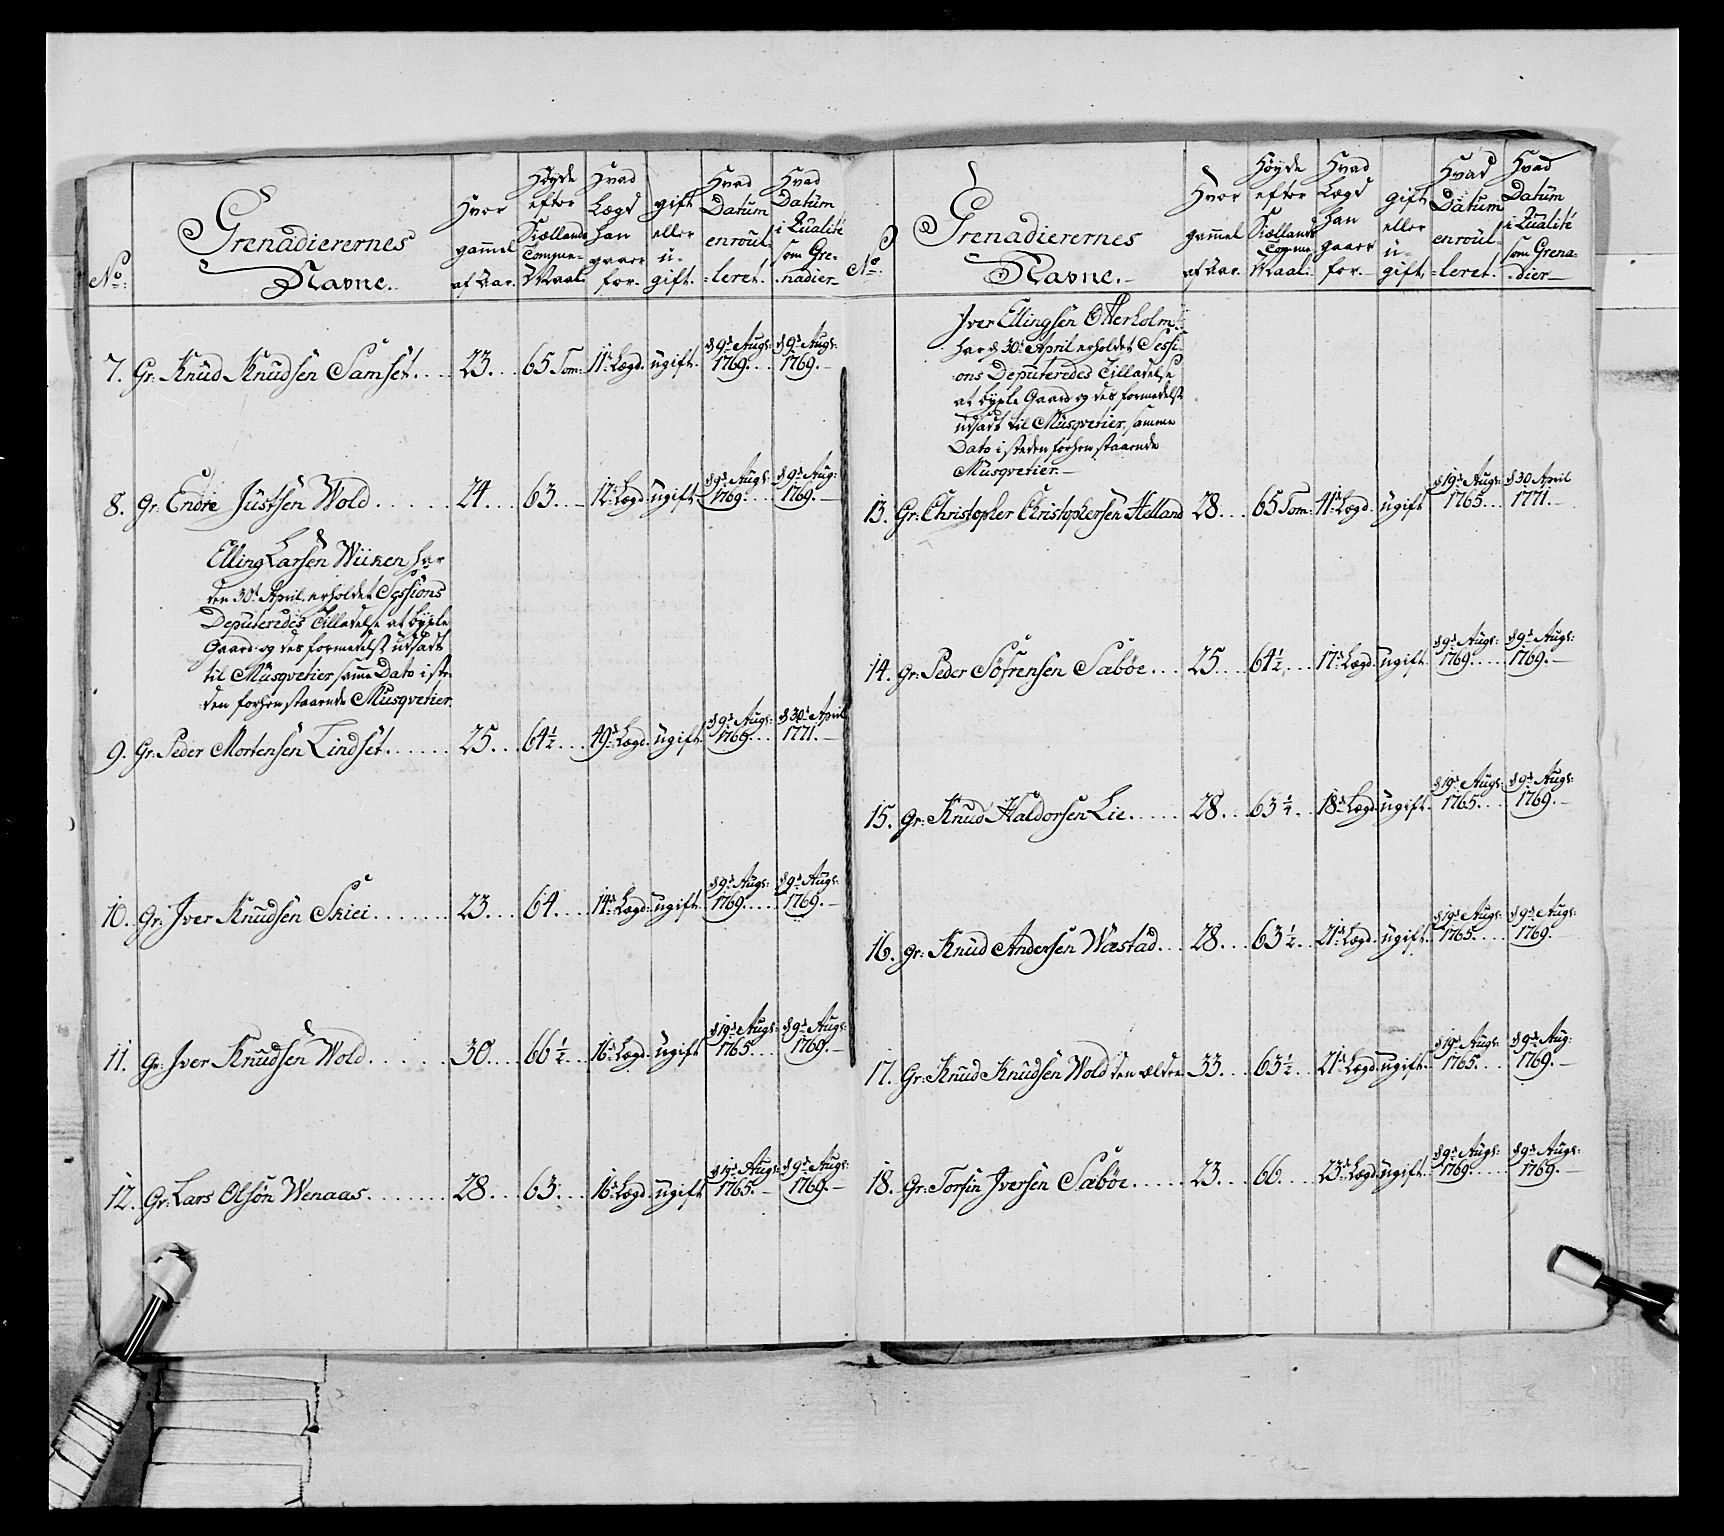 No:
Grenadierernes
Navne.
Hvor
gammel
af Aar.
Høyde
efter
Siællands
Tomme-
Maal.
Hvad
Lægd
han
gaaer
for.
gift
eller
u-
gift.
Hvad
Datum
enroul-
=leret.
Hvad
Datum
i Qualité
som Gre-
=nadier
7. Gr: Knud Knudsen Samset.... 23... 65 Tom: 11te Lægd. ugift. d 9d Augs: 1769.... d 9d Augs: 1769.
8. Gr: Endre Justsen Wold...... 24... 63... 12te Lægd ugift. d 9d Augs: 1769.... d 9d Aug: 1769.
Elling Larsen Wiiken har
den 30d April erholdet Sessions
Deputeredes Tilladelse at bÿxle
Gaard og des formedelst udsadt
til Musqvetier samme Dato i ste-
den forhen staaende Musqvetier.
9. Gr: Peder Mortensen Lindset....... 25... 64½... 49d Lægd. ugift. d 9d Augs: 1769.... d 30d April 1771.
10. Gr: Iver Knudsen Skiei....... 23... 64... 14d Lægd. ugift. d 9d Augs: 1769..... d 9d Augs: 1769.
11. Gr: Iver Knudsen Wold....... 30... 66½... 16d Lægd. ugift d 19d Augs: 1765.... d 9d Augs: 1769.
12. Gr: Lars Olsøn Wenaas....... 28... 63... 16d Lægd. ugift d 19d Augs: 1765. d 9d Augs: 1769.
No:
Grenadierernes
Navne.
Hvor
gammel
af Aar.
Høyde
efter
Siællands
Tomme
Maal.
Hvad
Lægd
han
gaaer
for.
gift
eller
u-
gift.
Hvad
Datum
enroul-
=leret.
Hvad
Datum
i Qualité
som Grena-
=dier
Iver Ellingsen Otterholm
har d 30d April erholdet Sessi-
ons Deputeredes Tilladelse
at bÿxle Gaard og des formedelst
udsadt til Musqvetier, samme
Dato i steden forhen staaende
Musqvetier.
13. Gr: Christopher Christophersen Helland 28... 65 Tom: 41d Lægd. ugift d 19d Augs: 1765... d 30 April 1771.
14. Gr: Peder Søfrensen Sabøe... 25... 64½.... 17d Lægd. ugift. d 9d Augs: 1769..... d 9d Augs: 1769.
15. Gr: Knud Haldorsen Lie..... 28... 63¼.. 18d Lægd. ugift. d 19d Augs: 1765.... d 9d Augs: 1769.
16. Gr: Knud Andersen Wæstad... 28... 63½.. 21d Lægd. ugift. d 19d Augs: 1765..... d 9d Augs: 1769.
17. Gr: Knud Knudsen Wold den ældre 33... 63½... 21d Lægd. ugift. d 19d Augs: 1765.... d 9d Aug: 1769.
18. Gr: Torsin Iversen Sabøe...... 23... 66.... 23d Lægd. ugift. d 9d Augs: 1769..... d 9d Augs: 1769.